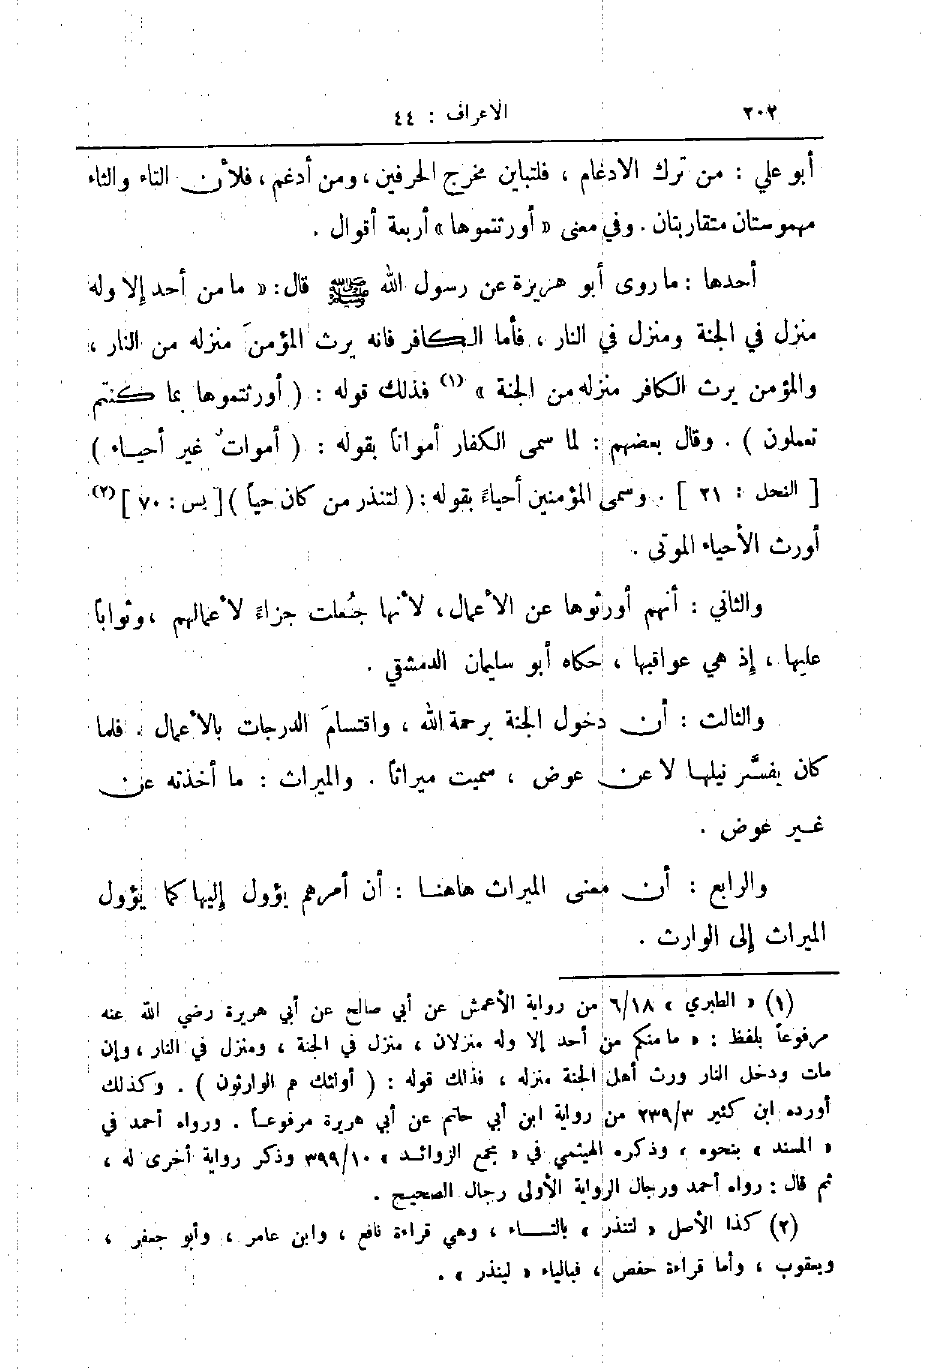 ٢٠٢ الاعراف : ٤٤
أبو علي : من ترك الادغام ، فلتباين مخرج الحرفين ، ومن أدغم ، فلأن التاء والثاء
مهموستان متقاربتان . وفي معنى « أورثتموها » أربعة أقوال .
أحدها : ما روى أبو هريرة عن رسول الله ﷺ قال : « ما من أحد إلا وله
منزل في الجنة ومنزل في النار ، فأما الكافر فانه يرث المؤمنَ منزله من النار ،
والمؤمن يرث الكافر منزله من الجنة » (١) فذلك قوله : ( أورثتموها بما كنتم
تعملون ) . وقال بعضهم : لما سمى الكفار أمواتاً بقوله : ( أمواتٌ غير أحياء )
[ النحل : ٢١ ] . وسمى المؤمنين أحياءً بقوله : ( لتنذر من كان حياً ) [ يس : ٧٠ ] (٢)
أورث الأحياء الموتى .
والثاني : أنهم أورثوها عن الأعمال ، لأنها جُعلت جزاءً لأعمالهم ، وثواباً
عليها ، إذ هي عواقبها ، حكاه أبو سليمان الدمشقي .
والثالث : أن دخول الجنة برحمة الله ، واقتسامَ الدرجات بالأعمال . فلما
كان يفسَّر نيلها لا عن عوض ، سميت ميراثاً . والميراث : ما أخذته عن
غير عوض .
والرابع : أن معنى الميراث هاهنا : أن أمرهم يؤول إليها كما يؤول
الميراث إلى الوارث .
(١) « الطبري » ٦/١٨ من رواية الأعمش عن أبي صالح عن أبي هريرة رضي الله عنه
مرفوعاً بلفظ : « ما منكم من أحد إلا وله منزلان ، منزل في الجنة ، ومنزل في النار ، وإن
مات ودخل النار ورث أهل الجنة منزله ، فذلك قوله : ( أولئك هم الوارثون ) . وكذلك
أورده ابن كثير ٢٣٩/٣ من رواية ابن أبي حاتم عن أبي هريرة مرفوعاً . ورواه أحمد في
« المسند » بنحوه ، وذكره الهيثمي في « مجمع الزوائد » ٣٩٩/١٠ وذكر رواية أخرى له ،
ثم قال : رواه أحمد ورجال الرواية الأولى رجال الصحيح .
(٢) كذا الأصل « لتنذر » بالتاء ، وهي قراءة نافع ، وابن عامر ، وأبو جعفر ،
ويعقوب ، وأما قراءة حفص ، فبالياء « لينذر » .